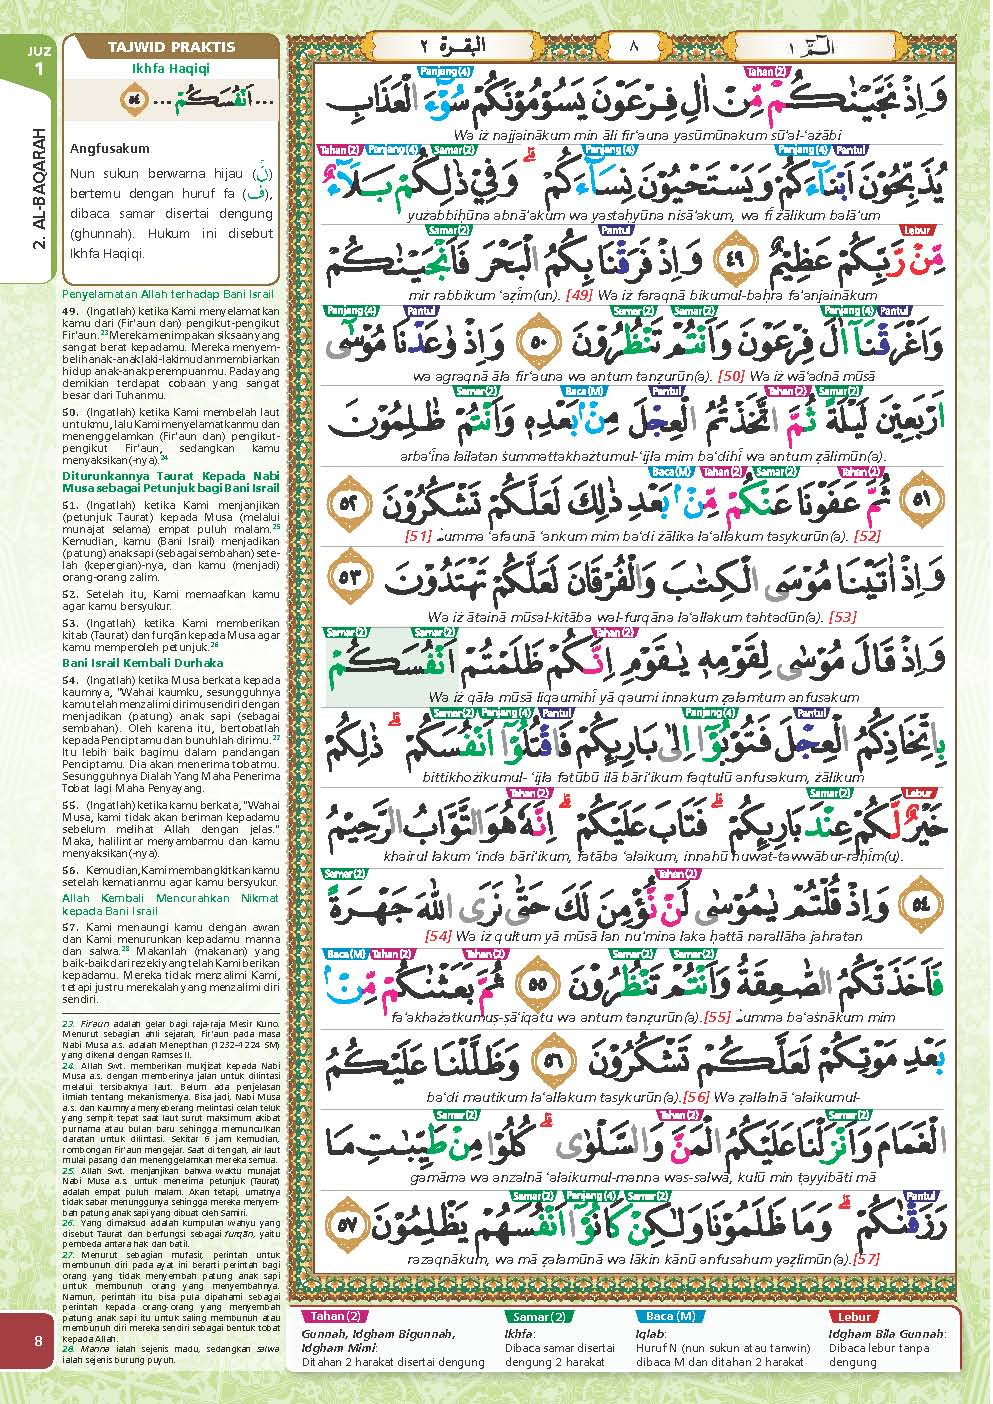 JUZ
1
2. AL-BAQARAH
TAJWID PRAKTIS
Ikhfa Haqiqi
... اَنْفُسَكُمْ ... ٥٤
Angfusakum
Nun sukun berwarna hijau (نْ)
bertemu dengan huruf fa (ف),
dibaca samar disertai dengung
(ghunnah). Hukum ini disebut
Ikhfa Haqiqi.
Penyelamatan Allah terhadap Bani Israil
49. (Ingatlah) ketika Kami menyelamatkan
kamu dari (Fir'aun dan) pengikut-pengikut
Fir'aun.23 Mereka menimpakan siksaan yang
sangat berat kepadamu. Mereka menyem-
belih anak-anak laki-lakimu dan membiarkan
hidup anak-anak perempuanmu. Pada yang
demikian terdapat cobaan yang sangat
besar dari Tuhanmu.
50. (Ingatlah) ketika Kami membelah laut
untukmu, lalu Kami menyelamatkanmu dan
menenggelamkan (Fir'aun dan) pengikut-
pengikut Fir'aun, sedangkan kamu
menyaksikan(-nya).24
Diturunkannya Taurat Kepada Nabi
Musa sebagai Petunjuk bagi Bani Israil
51. (Ingatlah) ketika Kami menjanjikan
(petunjuk Taurat) kepada Musa (melalui
munajat selama) empat puluh malam.25
Kemudian, kamu (Bani Israil) menjadikan
(patung) anak sapi (sebagai sembahan) sete-
lah (kepergian)-nya, dan kamu (menjadi)
orang-orang zalim.
52. Setelah itu, Kami memaafkan kamu
agar kamu bersyukur.
53. (Ingatlah) ketika Kami memberikan
kitab (Taurat) dan furqān kepada Musa agar
kamu memperoleh petunjuk.26
Bani Israil Kembali Durhaka
54. (Ingatlah) ketika Musa berkata kepada
kaumnya, "Wahai kaumku, sesungguhnya
kamu telah menzalimi dirimu sendiri dengan
menjadikan (patung) anak sapi (sebagai
sembahan). Oleh karena itu, bertobatlah
kepada Penciptamu dan bunuhlah dirimu.27
Itu lebih baik bagimu dalam pandangan
Penciptamu. Dia akan menerima tobatmu.
Sesungguhnya Dialah Yang Maha Penerima
Tobat lagi Maha Penyayang.
55. (Ingatlah) ketika kamu berkata, "Wahai
Musa, kami tidak akan beriman kepadamu
sebelum melihat Allah dengan jelas."
Maka, halilintar menyambarmu dan kamu
menyaksikan(-nya).
56. Kemudian, Kami membangkitkan kamu
setelah kematianmu agar kamu bersyukur.
Allah Kembali Mencurahkan Nikmat
kepada Bani Israil
57. Kami menaungi kamu dengan awan
dan Kami menurunkan kepadamu manna
dan salwa.28 Makanlah (makanan) yang
baik-baik dari rezeki yang telah Kami berikan
kepadamu. Mereka tidak menzalimi Kami,
tetapi justru merekalah yang menzalimi diri
sendiri.
23. Fir'aun adalah gelar bagi raja-raja Mesir Kuno.
Menurut sebagian ahli sejarah, Fir'aun pada masa
Nabi Musa a.s. adalah Menepthan (1232–1224 SM)
yang dikenal dengan Ramses II.
24. Allah Swt. memberikan mukjizat kepada Nabi
Musa a.s. dengan memberinya jalan untuk dilintasi
melalui tersibaknya laut. Belum ada penjelasan
ilmiah tentang mekanismenya. Bisa jadi, Nabi Musa
a.s. dan kaumnya menyeberang melintasi celah teluk
yang sempit tepat saat laut surut maksimum akibat
purnama atau bulan baru sehingga memunculkan
daratan untuk dilintasi. Sekitar 6 jam kemudian,
rombongan Fir'aun mengejar. Saat di tengah, air laut
mulai pasang dan menenggelamkan mereka semua.
25. Allah Swt. menjanjikan bahwa waktu munajat
Nabi Musa a.s. untuk menerima petunjuk (Taurat)
adalah empat puluh malam. Akan tetapi, umatnya
tidak sabar menunggunya sehingga mereka menyem-
bah patung anak sapi yang dibuat oleh Samiri.
26. Yang dimaksud adalah kumpulan wahyu yang
disebut Taurat dan berfungsi sebagai furqān, yaitu
pembeda antara hak dan batil.
27. Menurut sebagian mufasir, perintah untuk
membunuh diri pada ayat ini berarti perintah bagi
orang yang tidak menyembah patung anak sapi
untuk membunuh orang yang menyembahnya.
Namun, perintah itu bisa pula dipahami sebagai
perintah kepada orang-orang yang menyembah
patung anak sapi itu untuk saling membunuh atau
membunuh diri mereka sendiri sebagai bentuk tobat
kepada Allah.
28. Manna ialah sejenis madu, sedangkan salwa
ialah sejenis burung puyuh.
8
البقرة ٢
٨
الۤمّۤ ١
Panjang(4) Tahan(2)
وَاِذْ نَجَّيْنٰكُمْ مِّنْ اٰلِ فِرْعَوْنَ يَسُوْمُوْنَكُمْ سُوْۤءَ الْعَذَابِ
Wa iż najjainākum min āli fir‘auna yasūmūnakum sū'al-‘ażābi
Tahan(2) Panjang(4) Samar(2) Panjang(4) Panjang(4) Pantul
يُذَبِّحُوْنَ اَبْنَاۤءَكُمْ وَيَسْتَحْيُوْنَ نِسَاۤءَكُمْ ۗ وَفِيْ ذٰلِكُمْ بَلَاۤءٌ
yużabbiḥūna abnā'akum wa yastaḥyūna nisā'akum, wa fī żālikum balā'um
Samar(2) Pantul Lebur
مِّنْ رَّبِّكُمْ عَظِيْمٌ ٤٩ وَاِذْ فَرَقْنَا بِكُمُ الْبَحْرَ فَاَنْجَيْنٰكُمْ
mir rabbikum ‘aẓīm(un). [49] Wa iż faraqnā bikumul-baḥra fa'anjainākum
Panjang(4) Pantul Samar(2) Samar(2) Panjang(4) Pantul
وَاَغْرَقْنَآ اٰلَ فِرْعَوْنَ وَاَنْتُمْ تَنْظُرُوْنَ ٥٠ وَاِذْ وٰعَدْنَا مُوْسٰٓى
wa agraqnā āla fir‘auna wa antum tanẓurūn(a). [50] Wa iż wā‘adnā mūsā
Samar(2) Baca(M) Pantul Tahan(2) Samar(2)
اَرْبَعِيْنَ لَيْلَةً ثُمَّ اتَّخَذْتُمُ الْعِجْلَ مِنْۢ بَعْدِهٖ وَاَنْتُمْ ظٰلِمُوْنَ
arba‘īna lailatan ṡummattakhażtumul-‘ijla mim ba‘dihī wa antum ẓālimūn(a).
Baca(M) Tahan(2) Samar(2) Tahan(2)
٥١ ثُمَّ عَفَوْنَا عَنْكُمْ مِّنْۢ بَعْدِ ذٰلِكَ لَعَلَّكُمْ تَشْكُرُوْنَ ٥٢
[51] Ṡumma ‘afaunā ‘ankum mim ba‘di żālika la‘allakum tasykurūn(a). [52]
وَاِذْ اٰتَيْنَا مُوْسَى الْكِتٰبَ وَالْفُرْقَانَ لَعَلَّكُمْ تَهْتَدُوْنَ ٥٣
Wa iż ātainā mūsal-kitāba wal-furqāna la‘allakum tahtadūn(a). [53]
Samar(2) Samar(2) Tahan(2)
وَاِذْ قَالَ مُوْسٰى لِقَوْمِهٖ يٰقَوْمِ اِنَّكُمْ ظَلَمْتُمْ اَنْفُسَكُمْ
Wa iż qāla mūsā liqaumihī yā qaumi innakum ẓalamtum anfusakum
Samar(2) Panjang(4) Pantul Panjang(4) Pantul
بِاتِّخَاذِكُمُ الْعِجْلَ فَتُوْبُوْٓا اِلٰى بَارِىِٕكُمْ فَاقْتُلُوْٓا اَنْفُسَكُمْ ۗ ذٰلِكُمْ
bittikhożikumul- ‘ijla fatūbū ilā bāri'ikum faqtulū anfusakum, żālikum
Tahan(2) Samar(2) Lebur
خَيْرٌ لَّكُمْ عِنْدَ بَارِىِٕكُمْ ۗ فَتَابَ عَلَيْكُمْ ۗ اِنَّهٗ هُوَ التَّوَّابُ الرَّحِيْمُ
khairul lakum ‘inda bāri'ikum, fatāba ‘alaikum, innahū huwat-tawwābur-raḥīm(u).
Samar(2) Tahan(2)
٥٤ وَاِذْ قُلْتُمْ يٰمُوْسٰى لَنْ نُّؤْمِنَ لَكَ حَتّٰى نَرَى اللّٰهَ جَهْرَةً
[54] Wa iż qultum yā mūsā lan nu'mina laka ḥattā narallāha jahratan
Baca(M) Tahan(2) Tahan(2) Samar(2) Samar(2)
فَاَخَذَتْكُمُ الصّٰعِقَةُ وَاَنْتُمْ تَنْظُرُوْنَ ٥٥ ثُمَّ بَعَثْنٰكُمْ مِّنْۢ
fa'akhażatkumuṣ-ṣā‘iqatu wa antum tanẓurūn(a).[55] Ṡumma ba‘aṡnākum mim
بَعْدِ مَوْتِكُمْ لَعَلَّكُمْ تَشْكُرُوْنَ ٥٦ وَظَلَّلْنَا عَلَيْكُمُ
ba‘di mautikum la‘allakum tasykurūn(a).[56] Wa ẓallalnā ‘alaikumul-
Samar(2) Tahan(2) Samar(2)
الْغَمَامَ وَاَنْزَلْنَا عَلَيْكُمُ الْمَنَّ وَالسَّلْوٰى ۗ كُلُوْا مِنْ طَيِّبٰتِ مَا
gamāma wa anzalnā ‘alaikumul-manna was-salwā, kulū min ṭayyibāti mā
Samar(2) Panjang(4) Samar(2) Pantul
رَزَقْنٰكُمْ ۗ وَمَا ظَلَمُوْنَا وَلٰكِنْ كَانُوْٓا اَنْفُسَهُمْ يَظْلِمُوْنَ ٥٧
razaqnākum, wa mā ẓalamūnā wa lākin kānū anfusahum yaẓlimūn(a).[57]
Tahan(2)
Gunnah, Idgham Bigunnah,
Idgham Mimi:
Ditahan 2 harakat disertai dengung
Samar(2)
Ikhfa:
Dibaca samar disertai
dengung 2 harakat
Baca (M)
Iqlab:
Huruf N (nun sukun atau tanwin)
dibaca M dan ditahan 2 harakat
Lebur
Idgham Bila Gunnah:
Dibaca lebur tanpa
dengung